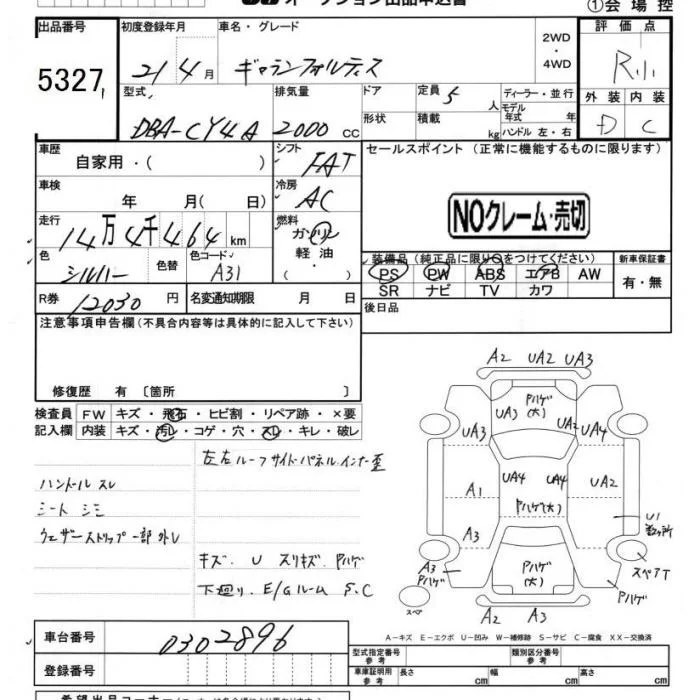 ①会場控
出品番号
5327
初度登録年月
21 4 月
車名・グレード
ギャランフォルティス
2WD
・
4WD
評価点
R小
外装 内装
D C
型式
DBA-CY4A
排気量
2000 cc
ドア
形状
定員 5 人
積載 kg
ディーラー・並行
モデル年式 年
ハンドル 左・右
車歴
自家用・( )
シフト
FAT
セールスポイント (正常に機能するものに限ります)
車検
年 月( 日)
冷房
AC
NOクレーム・売切
走行
14万4千464 km
燃料
ガソリン
軽油
色
シルバー
色替
色コード
A31
装備品(純正品に限り○をつけてください)
PS PW ABS エアB AW
SR ナビ TV カワ
新車保証書
有・無
R券 12030 円
名変通知期限 月 日
後日品
注意事項申告欄(不具合内容等は具体的に記入して下さい)
修復歴 有 〔箇所 〕
検査員 FW キズ・飛石・ヒビ割・リペア跡・×要
記入欄 内装 キズ・汚レ・コゲ・穴・スレ・キレ・破レ
左右ルーフサイドパネルインナー歪
ハンドル スレ
シート シミ
ウェザーストリップ一部外レ
キズ U スリキズ Pハゲ
下廻り、E/Gルーム S、C
A2 UA2 UA3
Pハゲ
(大)
UA3
UA2
UA3
UA4
UA4
UA4
A1
UA2
Pハゲ(大)
A3
U1
A3
Pハゲ
Pハゲ
(大)
スペアT
Pハゲ
スペア
A2 A3
A-キズ E-エクボ U-凹み W-補修跡 S-サビ C-腐食 XX-交換済
車台番号
0302896
登録番号
型式指定番号
参考
類別区分番号
参考
車庫証明用
参考
長さ cm
幅 cm
高さ cm